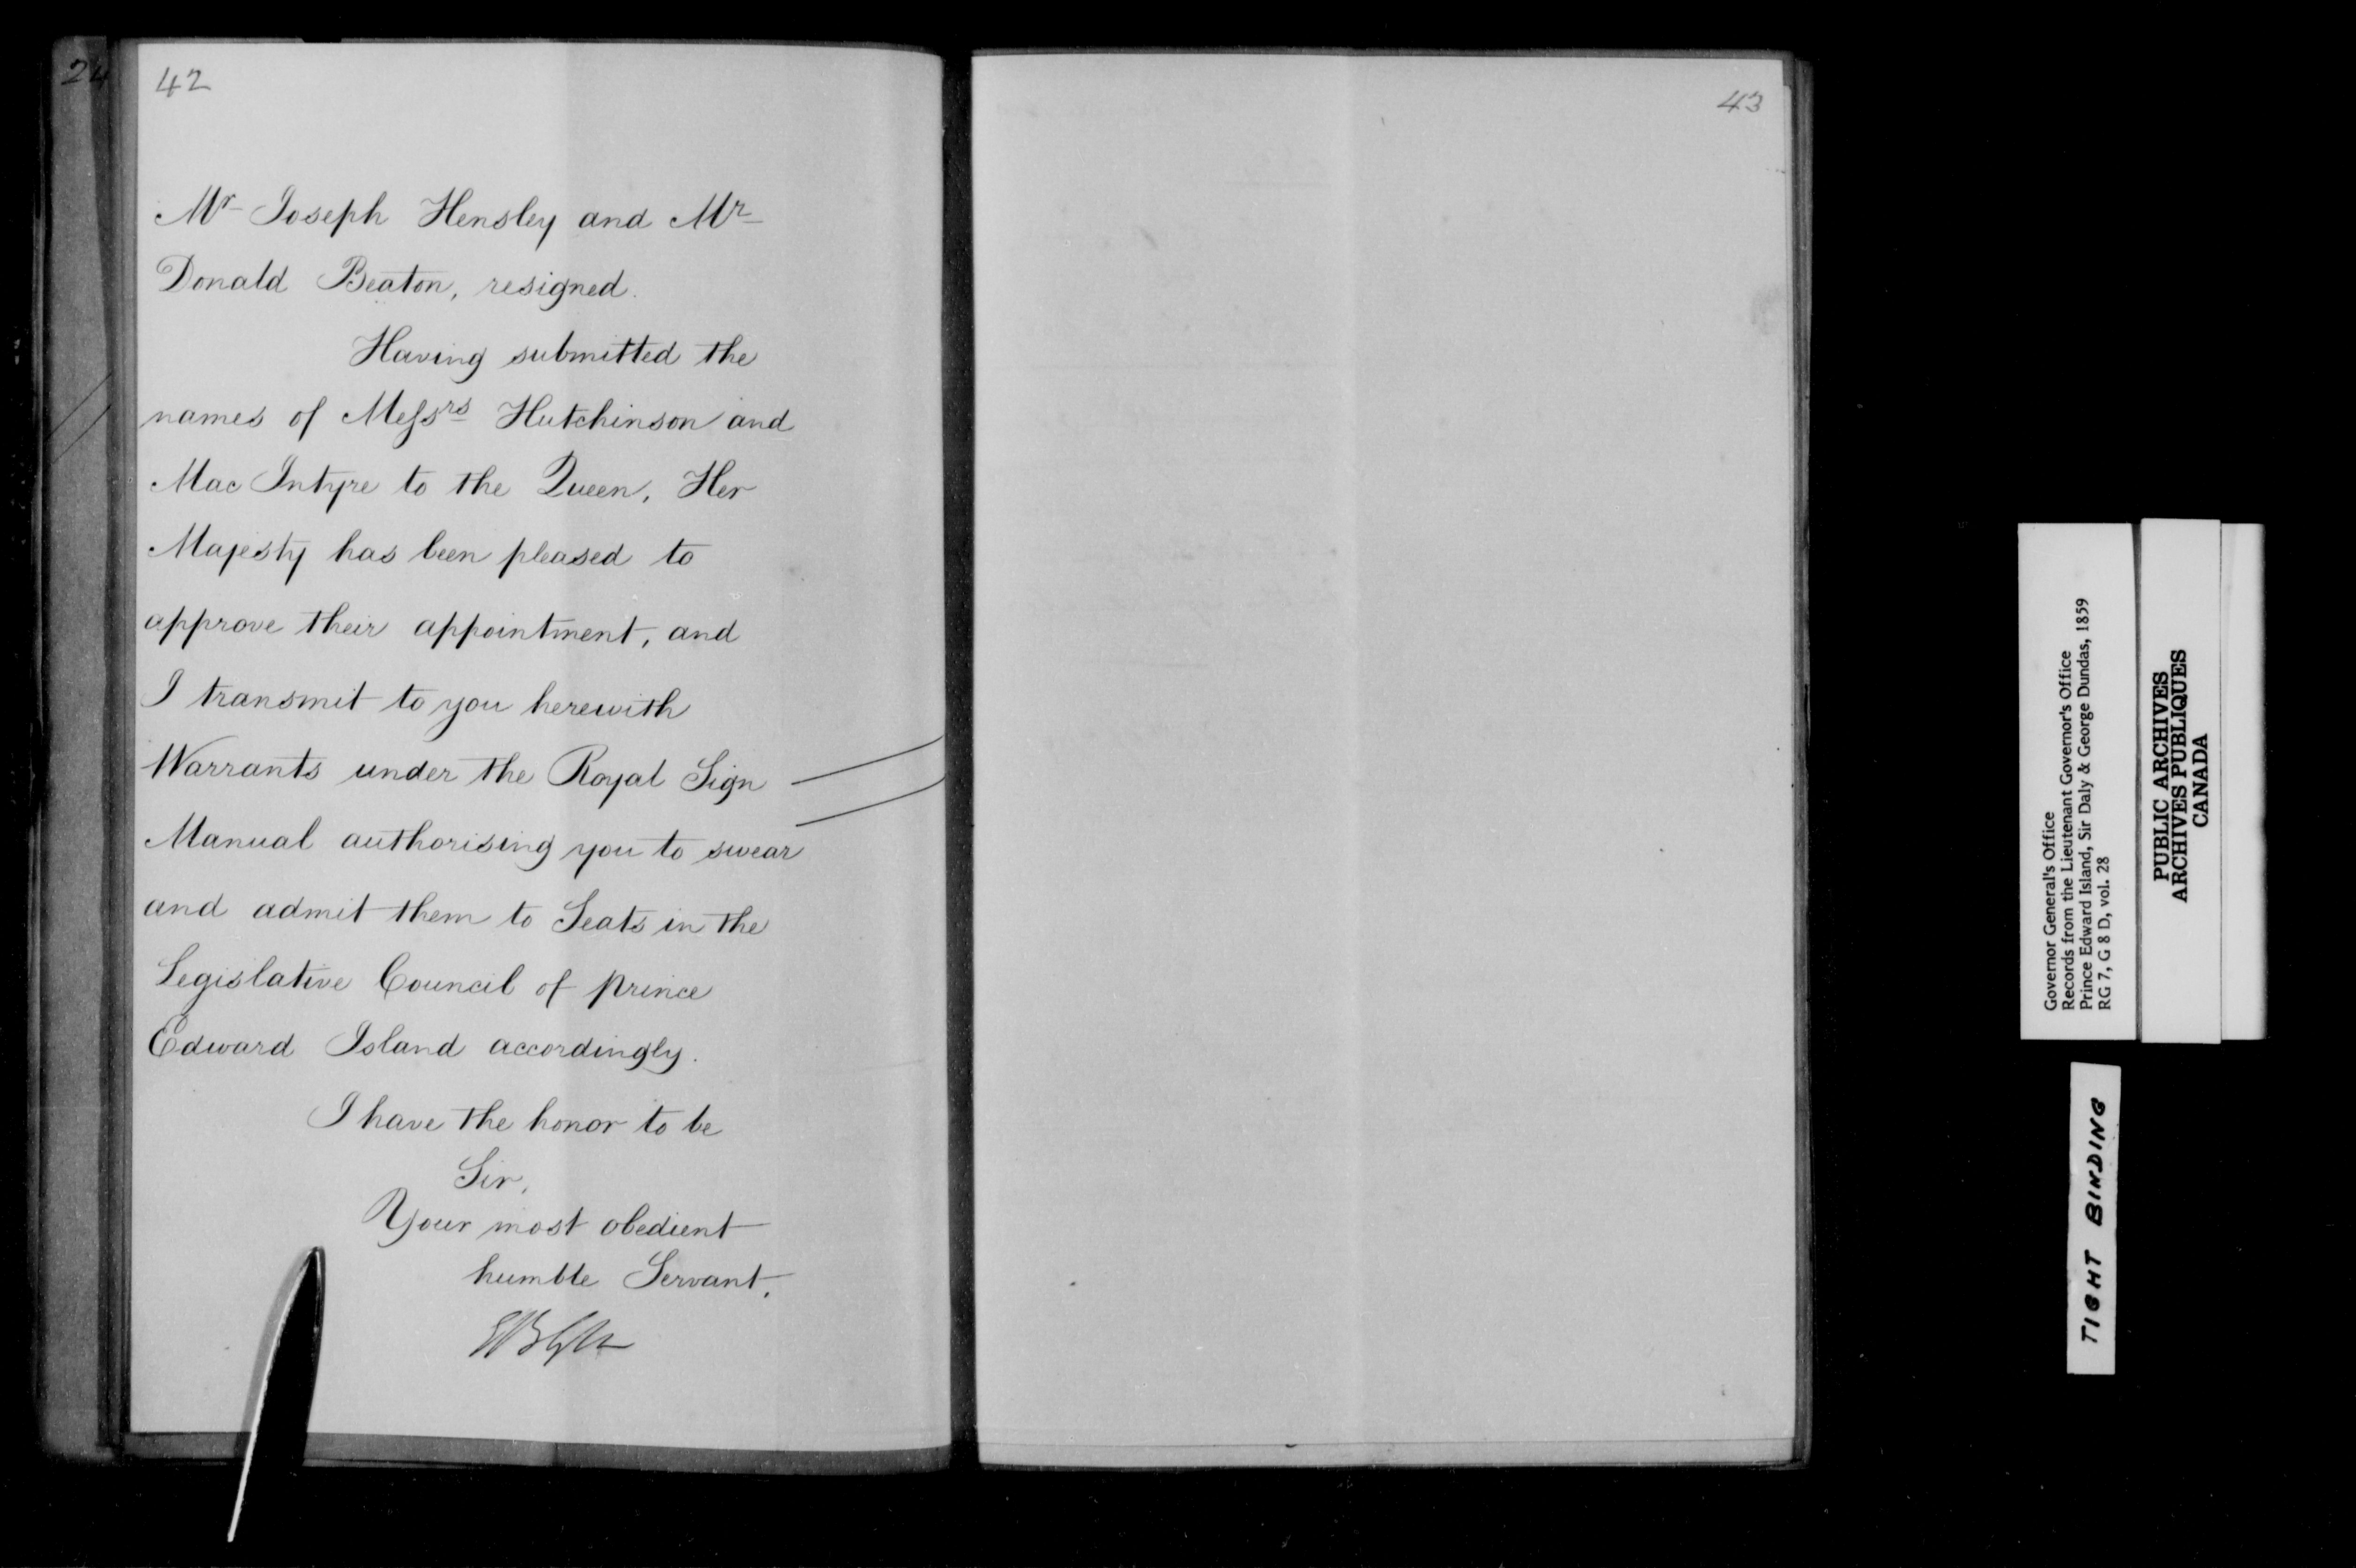 24
42
Mr Joseph Hensley and Mr
Donald Beaton, resigned.
Having submitted the
names of Messrs Hutchinson and
Mac Intyre to the Queen, Her
Majesty has been pleased to
approve their appointment, and
I transmit to you herewith
Warrants under the Royal Sign
Manual authorising you to swear
and admit them to Seats in the
Legislative Council of prince
Edward Island accordingly.
I have the honor to be
Sir,
Your most obedient
humble Servant,
43
Governor General's Office
Records from the Lieutenant Governor's Office
Prince Edward Island, Sir Daly & George Dundas, 1859
RG 7, G 8 D, vol. 28
PUBLIC ARCHIVES
ARCHIVES PUBLIQUES
CANADA
TIGHT BINDING